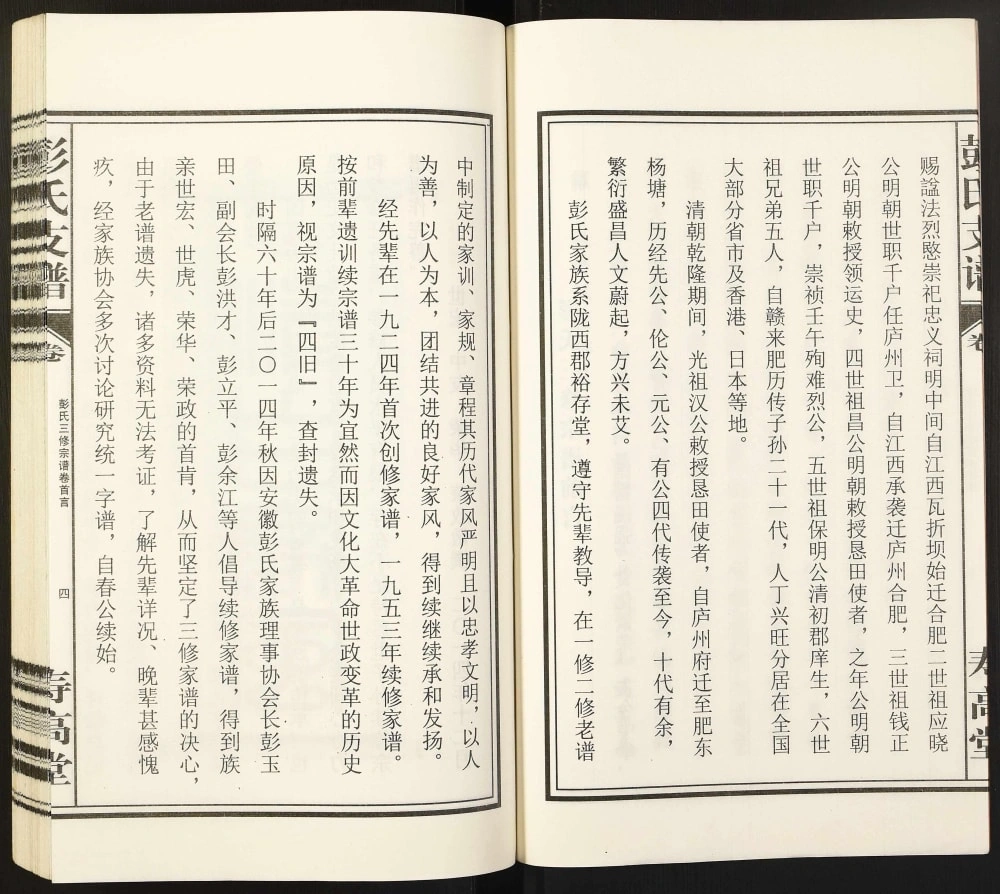 赐諡法烈愍崇祀忠义祠明中间自江西瓦折坝始迁合肥二世祖应晓
公明朝世职千户任庐州卫，自江西承袭迁庐州合肥，三世祖钱正
公明朝敕授领运史，四世祖昌公明朝敕授恳田使者，之年公明朝
世职千户，崇祯壬午殉难烈公，五世祖保明公清初郡庠生，六世
祖兄弟五人，自赣来肥历传子孙二十一代，人丁兴旺分居在全国
大部分省市及香港、日本等地。
清朝乾隆期间，光祖汉公敕授恳田使者，自庐州府迁至肥东
杨塘，历经先公、伦公、元公、有公四代传袭至今，十代有余，
繁衍盛昌人文蔚起，方兴未艾。
彭氏家族系陇西郡裕存堂，遵守先辈教导，在一修二修老谱
中制定的家训、家规、章程其历代家风严明且以忠孝文明，以人
为善，以人为本，团结共进的良好家风，得到续继续承和发扬。
经先辈在一九二四年首次创修家谱，一九五三年续修家谱。
按前辈遗训续宗谱三十年为宜然而因文化大革命世政变革的历史
原因，视宗谱为『四旧』，查封遗失。
时隔六十年后二〇一四年秋因安徽彭氏家族理事协会长彭玉
田、副会长彭洪才、彭立平、彭余江等人倡导续修家谱，得到族
亲世宏、世虎、荣华、荣政的首肯，从而坚定了三修家谱的决心，
由于老谱遗失，诸多资料无法考证，了解先辈详况、晚辈甚感愧
疚，经家族协会多次讨论研究统一字谱，自春公续始。
彭氏支谱
卷
彭氏三修宗谱卷首言
四
寿高堂
彭氏支谱
卷
寿高堂